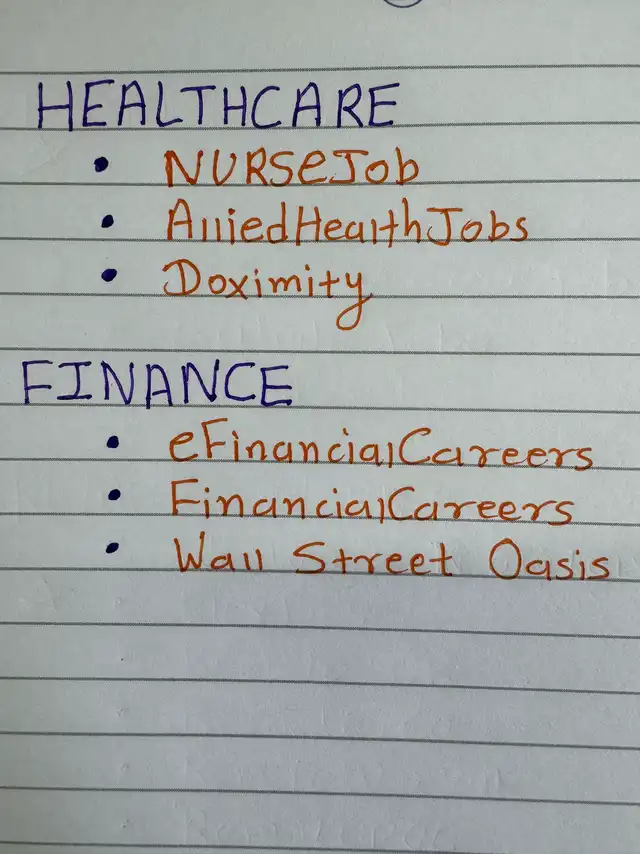 HEALTHCARE
• NURSeJob
• AlliedHealthJobs
• Doximity
FINANCE
• eFinancialCareers
• FinancialCareers
• Wall Street Oasis